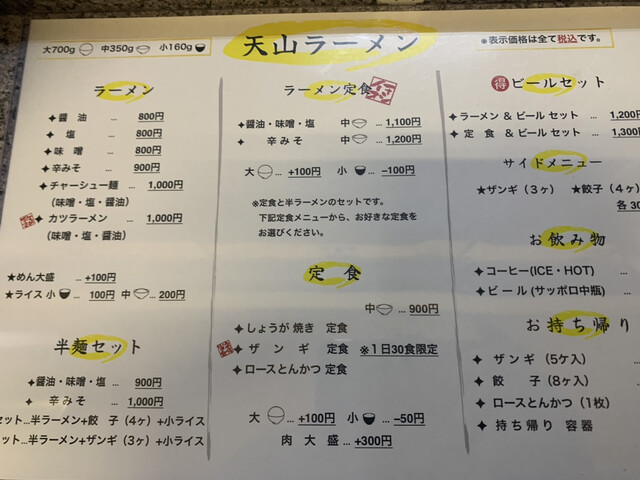 大700g 中350g 小160g
天山ラーメン
※表示価格は全て税込です。
ラーメン
✦醤 油 ... 800円
✦ 塩 ... 800円
✦味 噌 ... 800円
✦辛みそ ... 900円
✦チャーシュー麺 ... 1,000円
(味噌・塩・醤油)
✦カツラーメン ... 1,000円
(味噌・塩・醤油)
★めん大盛 ... +100円
★ライス 小 ... 100円 中 ... 200円
半麺セット
✦醤油・味噌・塩 ... 900円
✦ 辛みそ ... 1,000円
セット...半ラーメン+餃 子(4ヶ)+小ライス
ット...半ラーメン+ザンギ(3ヶ)+小ライス
ラーメン定食
✦醤油・味噌・塩 中 ... 1,100円
✦ 辛みそ 中 ... 1,200円
大 ... +100円 小 ... −100円
※定食と半ラーメンのセットです。
下記定食メニューから、お好きな定食を
お選びください。
定 食
中 ... 900円
✦しょうが焼き 定食
✦ザ ン ギ 定食 ※1日30食限定
✦ロースとんかつ 定食
大 ... +100円 小 ... −50円
肉 大 盛 ... +300円
得 ビールセット
✦ラーメン & ビール セット ... 1,200円
✦定 食 & ビール セット ... 1,300
サイドメニュー
★ザンギ(3ヶ) ★餃子(4ヶ)
各30
お飲み物
✦コーヒー(ICE・HOT) ...
✦ビール(サッポロ中瓶) ...
お持ち帰り
✦ザンギ(5ケ入) ...
✦餃 子(8ヶ入) ...
✦ロースとんかつ(1枚)
✦持ち帰り 容器